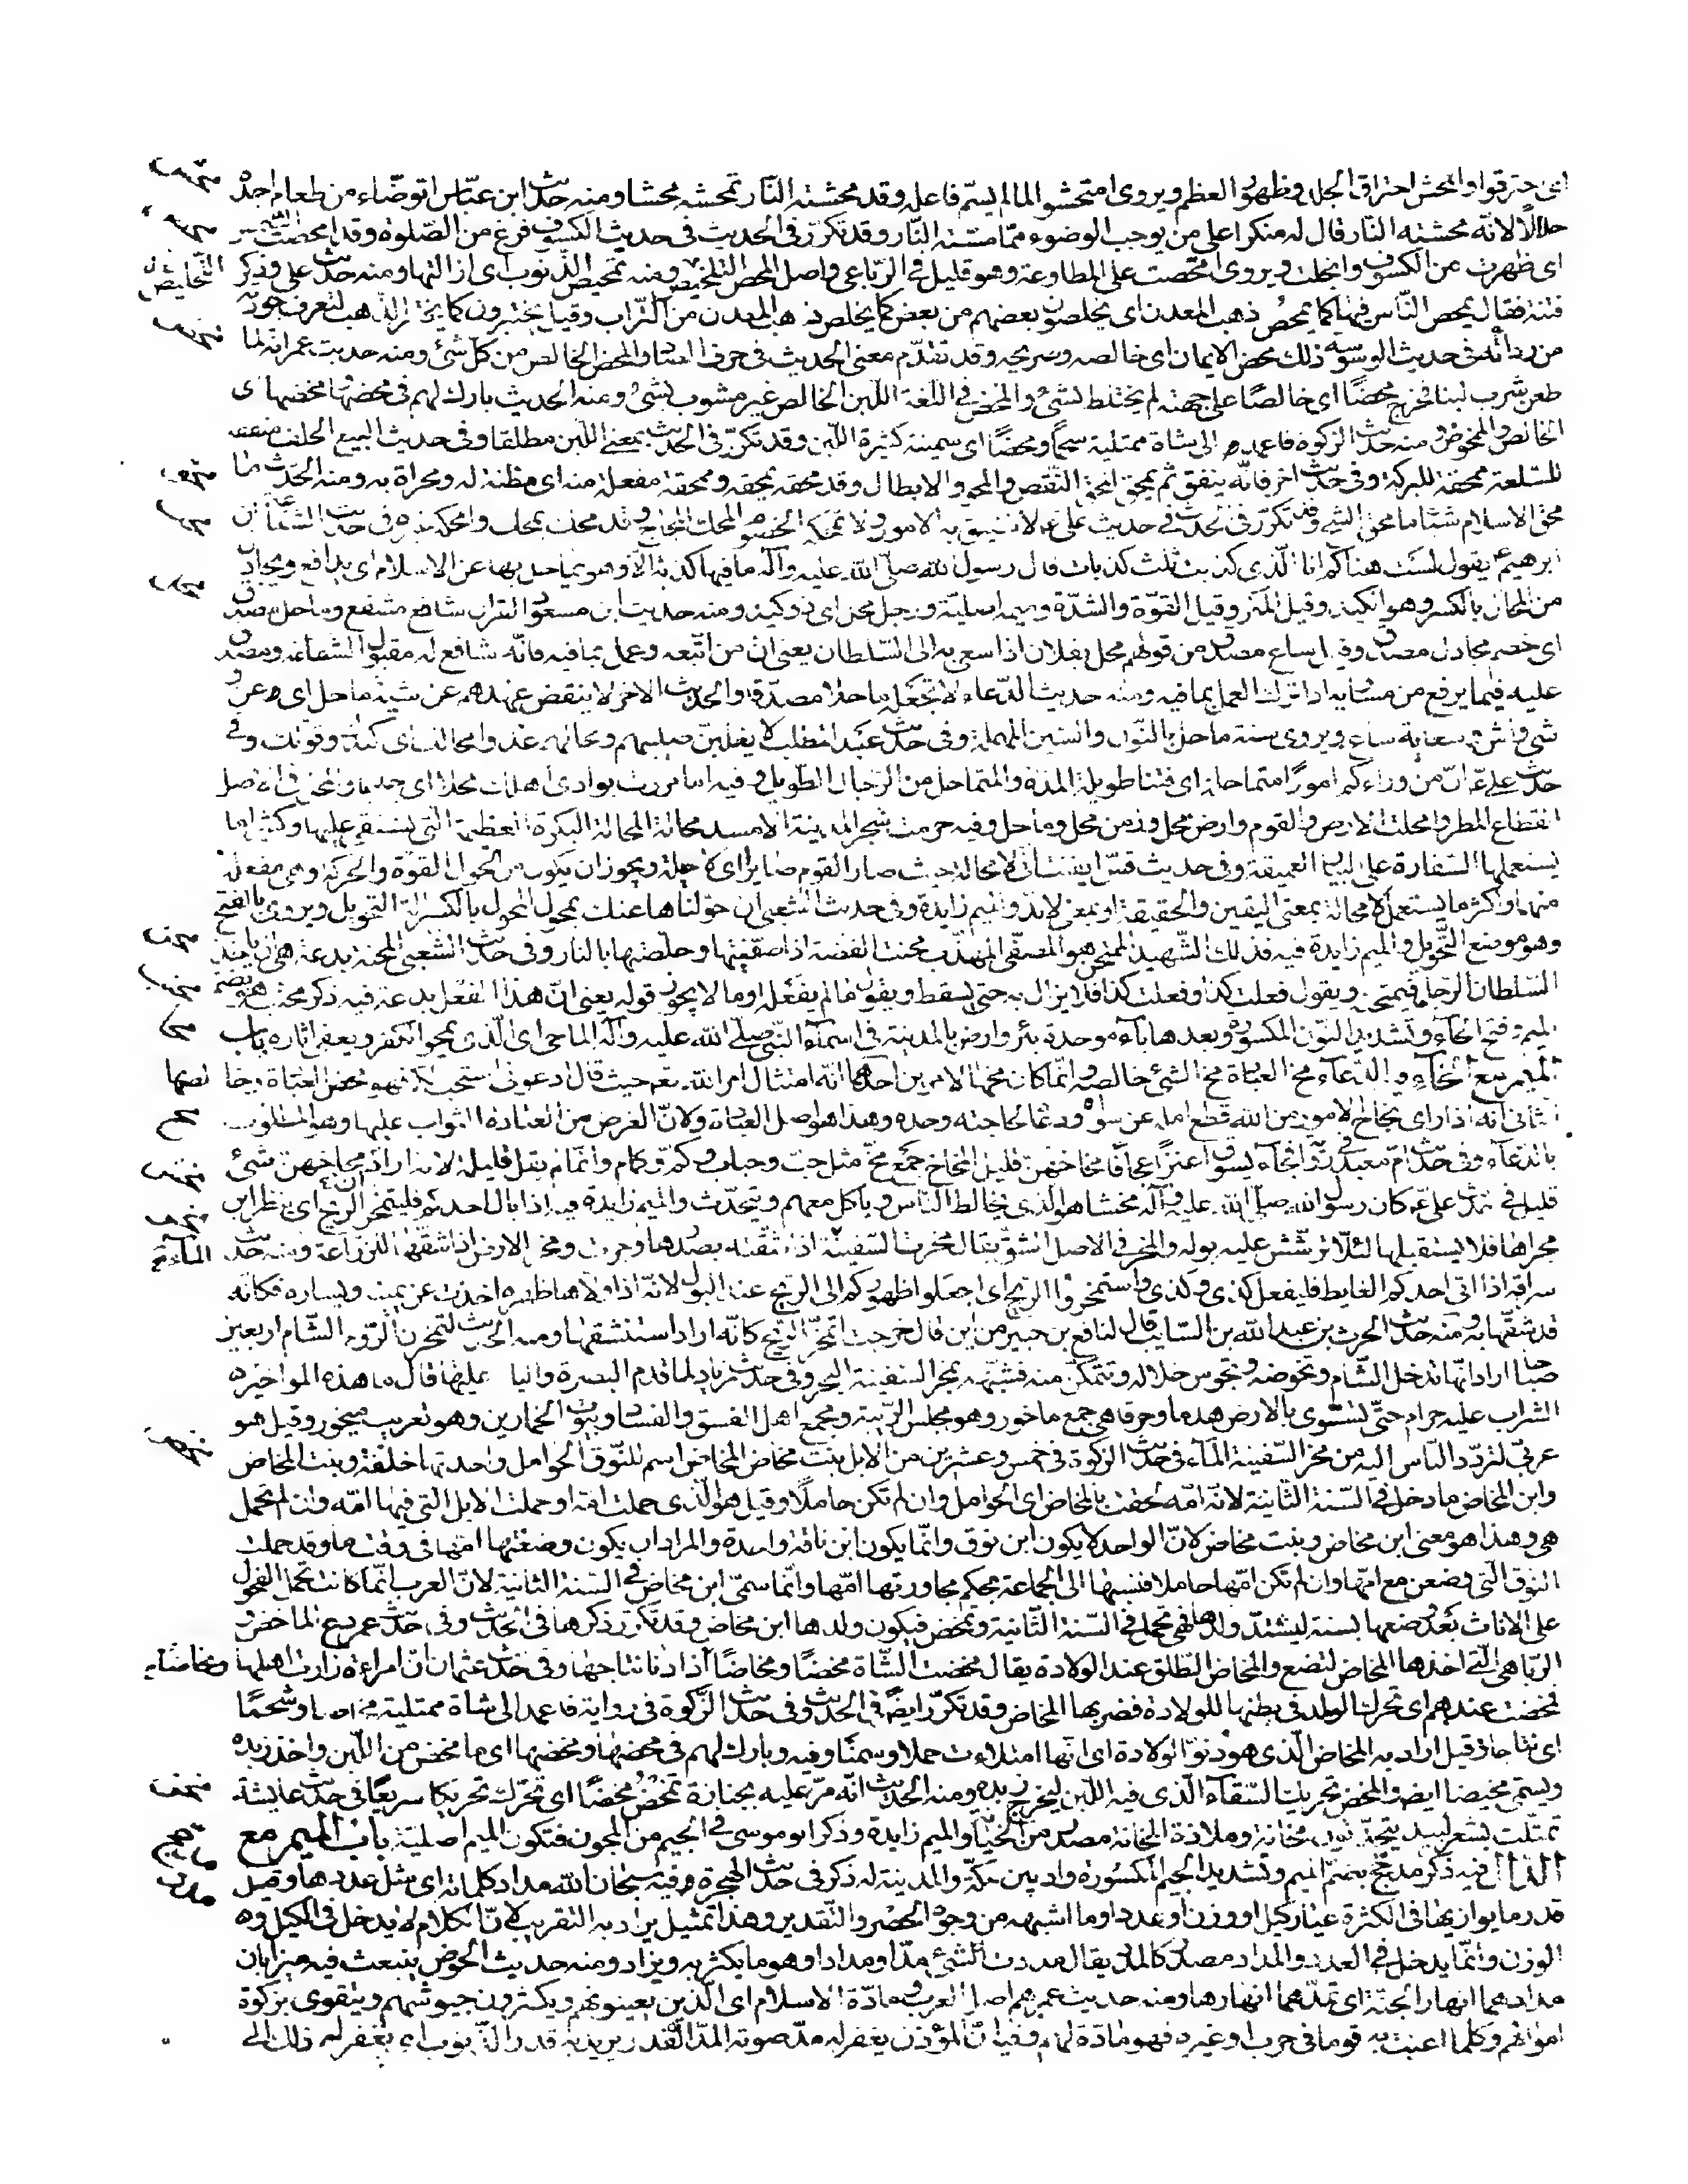 اى حترقوا والمحش احتراق الجلد وظهور العظم ويروى امتحشوا لما لم يسم فاعله وقد محشته النار تمحشه محشا ومنه حديث ابن عباس اتوضاء من طعام اجده
حلالا لانه محشته النار قال له منكرا على من يوجب الوضوء مما مسته النار وقد تكرر فى الحديث فى حديث الكسوف فرغ من الصلوة وقد امحصت الشمس
اى ظهرت من الكسوف وانجلت ويروى امحصت على المطاوعة وهو قليل فى الرباعى واصل المحص التخليص ومنه تمحيص الذنوب اى ازالتها ومنه حديث على وذكر
فتنة فقال يمحص الناس فيها كما يمحص ذهب المعدن اى يخلصون بعضهم من بعض كما يخلص ذهب المعدن من التراب وقيل يختبرون كما يختبر الذهب لتعرف جودته
من ردائته فى حديث الوسوسه ذلك محض الايمان اى خالصه وصريحه وقد تقدم معنى الحديث فى حرف الصاد والمحض الخالص من كل شئ ومنه حديث عمر انه لما
طعن شرب لبنا فخرج محضا اى خالصا على جهته لم يختلط بشئ والمحض فى اللغة اللبن الخالص غير مشوب بشئ ومنه الحديث بارك لهم فى محضها ومخضها اى
الخالص والمخوض ومنه حديث الزكوة فاعمد الى شاة ممتلية شحما ومحضا اى سمينة كثيرة اللبن وقد تكرر فى الحديث بمعنى اللبن مطلقا وفى حديث البيع الحلف منفقة
للسلعة ممحقة للبركة وفى حديث اخر فانه ينفق ثم يمحق المحق النقص والمحو والابطال وقد محقه يمحقه وممحقة مفعلة منه اى مظنة له ومحراة به ومنه الحديث ما
محق الاسلام شئا ما محق الشح وقد تكرر فى الحديث فى حديث على لا تضيق به الامور ولا تمحكه الخصوم المحك اللجاج وقد محك يمحك وامحكه غيره فى حديث الشفاعة ان
ابرهيم يقول لست هناكم انا الذى كذبت ثلث كذبات قال رسول الله صلى الله عليه وآله ما فيها كذبة الا وهو يماحل بها عن الاسلام اى يدافع ويجادل
من المحال بالكسر وهو الكيد وقيل المكر وقيل القوة والشدة وميمه اصلية ورجل محل اى ذو كيد ومنه حديث ابن مسعود القران شافع مشفع وماحل مصدق
اى خصم مجادل مصدق وقيل ساع مصدق من قولهم محل بفلان اذا سعى به الى السلطان يعنى ان من اتبعه وعمل بما فيه فانه شافع له مقبول الشفاعة ومصدق
عليه فيما يرفع من مساويه اذا ترك العمل بما فيه ومنه حديث الدعاء لا تجعله ماحلا مصدقا والحديث الاخر لا ينقض عهدهم عن شية ماحل اى عن
وشى واش وسعاية ساع ويروى سنة ماحل بالنون والسين المهملة وفى حديث عبد المطلب لا يغلبن صليبهم ومحالهم غدوا محالك اى كيدك وقوتك وفى
حديث على ان من ورائكم امورا متماحلة اى فتنا طويلة المدة والمتماحل من الرجال الطويل وفيه اما مررت بوادى اهلك محلا اى جدبا والمحل فى الاصل
انقطاع المطر وامحلت الارض والقوم وارض محل وزمن محل وماحل وفيه حرمت شجر المدينة الا مسد محالة المحالة البكرة العظيمة التى يستقى عليها وكثيرا ما
يستعملها السفارة على البيار العميقة وفى حديث قس ايقنت انى لا محالة حيث صار القوم صاير اى لا حيلة ويجوز ان يكون من الحول القوة والحركة وهى مفعلة
منهما واكثر ما يستعمل لا محالة بمعنى اليقين والحقيقة او بمعنى لابد والميم زايدة وفى حديث الشعبى ان حولناها عنك بمحول المحول بالكسر الة التحويل ويروى بالفتح
وهو موضع التحويل والميم زايدة فيه فذلك الشهيد الممتحن هو المصفى المهذب محنت الفضة اذا صفيتها وخلصتها بالنار وفى حديث الشعبى المحنة بدعة هى ان ياخذ
السلطان الرجل فيمتحنه ويقول فعلت كذا وفعلت كذا فلا يزال به حتى يسقط ويقول ما لم يفعله او ما لا يجوز قوله يعنى ان هذا الفعل بدعة فيه ذكر محنب هو بضم
الميم وفتح الحاء وتشديد النون المكسوره وبعدها باء موحدة بئر وارض بالمدينة فى اسماء النبى صلى الله عليه وآله الماحى اى الذى يمحو الكفر ويعفى اثاره باب
الميم مع الخاء فيه الدعاء مخ العبادة مخ الشئ خالصه وانما كان مخها لامرين احدهما انه امتثال امر الله تعم حيث قال ادعونى استجب لكم فهو محض العبادة وخالصها
الثانى انه اذا راى نجاح الامور من الله قطع امله عن سواه ودعا لحاجته وحده وهذا هو اصل العبادة ولان الغرض من العبادة الثواب عليها وهو المطلوب
بالدعاء وفى حديث ام معبد فى رواية فجاء يسوق اعنزا عجافا مخاخهن قليل المخاخ جمع مخ مثل حب وحباب وكم وكمام وانما لم يقل قليلة لانه اراد مخاخهن شئ
قليل فى حديث على ع كان رسول الله صلى الله عليه وآله مخشا هو الذى يخالط الناس وياكل معهم ويتحدث والميم زايدة فيه اذا بال احدكم فليتمخر الريح اى ينظر اين
مجراها فلا يستقبلها لئلا ترشش عليه بوله والمخر فى الاصل الشق يقال مخرت السفينة اذا شقته بصدرها وجرت ومخر الارض اذا شقها للزراعة ومنه حديث الماء
سراقة اذا اتى احدكم الغايط فليفعل كذى وكذى واستمخروا الريح اى اجعلوا ظهوركم الى الريح عند البول لانه اذا ولاها ظهره اخذت عن يمينه ويساره فكانه
قد شقها به ومنه حديث الحرث بن عبد الله بن السايب قال لنافع بن جبير من اين قال خرجت اتمخر الريح كانه اراد استنشقها ومنه الحديث لتمخرن الروم الشام اربعين
صباحا اراد انها تدخل الشام وتخوضه وتجوس خلاله وتتمكن منه فشبهه بمخر السفينة البحر وفى حديث زياد لما قدم البصرة واليا عليها قال ما هذه المواخير
الشراب عليه حرام حتى تسوى بالارض هدما وحرقا هى جمع ماخور وهو مجلس الريبة ومجمع اهل الفسق والفساد وبيوت الخمارين وهو تعريب ميخور وقيل هو
عربى لتردد الناس اليه من مخر السفينة الماء فى حديث الزكوة فى خمس وعشرين من الابل بنت مخاض المخاض اسم للنوق الحوامل واحدتها خلفة وبنت المخاض
وابن المخاض ما دخل فى السنة الثانية لانه امه لحقت بالمخاض اى الحوامل وان لم تكن حاملا وقيل هو الذى حملت امه او حملت الابل التى فيها امه وان لم تحمل
هى وهذا هو معنى ابن مخاض وبنت مخاض لان الواحد لا يكون ابن نوق وانما يكون ابن ناقة واحدة والمراد ان يكون وضعتها امها فى وقت ما وقد حملت
النوق التى وضعن مع امها وان لم تكن امها حاملا فنسبها الى الجماعة بحكم مجاورتها امها وانما سمى ابن مخاض فى السنة الثانية لان العرب انما كانت تحمل الفحول
على الاناث بعد وضعها بسنة ليشتد ولدها فهى تحمل فى السنة الثانية وتمخض فيكون ولدها ابن مخاض وقد تكرر ذكرها فى الحديث وفى حديث عمر دع الماخض و
الربا هى التى اخذها المخاض لتضع والمخاض الطلق عند الولادة يقال مخضت الشاة مخضا ومخاضا اذا دنا نتاجها وفى حديث عثمان ان امراءة زارت اهلها ومخاضا
فمخضت عندهم اى تحرك الولد فى بطنها للولادة فضربها المخاض وقد تكرر ايضا فى الحديث وفى حديث الزكوة فى رواية فاعمد الى شاة ممتلية مخاضا وشحما
اى نتاجا وقيل اراد به المخاض الذى هو دنو الولادة اى انها امتلاءت حملا وسمنا وفيه وبارك لهم فى محضها ومخضها اى ما مخض من اللبن واخذ زبده
ويسمى مخيضا ايضا والمخض تحريك السقاء الذى فيه اللبن ليخرج زبده ومنه الحديث انه مر عليه بجنازة تمخض مخضا اى تحرك تحريكا سريعا فى حديث عايشة
تمثلت بشعر لبيد يتحدثون مخانة وملاذة المخانة مصدر من الخيانة والميم زايدة وذكر ابو موسى فى الجيم من المجون فتكون الميم اصلية باب الميم مع
الدال فيه ذكر مدجج بضم الميم وتشديد الجيم المكسورة واد بين مكة والمدينة له ذكر فى حديث الهجرة وفيه سبحان الله مداد كلماته اى مثل عددها وقيل
قدر ما يوازيها فى الكثرة عيار كيل او وزن او عدد او ما اشبهه من وجوه الحصر والتقدير وهذا تمثيل يراد به التقريب لان الكلام لا يدخل فى الكيل و
الوزن وانما يدخل فى العدد والمداد مصدر كالمد يقال مددت الشئ مدا ومدادا وهو ما يكثر به ويزاد ومنه حديث الحوض ينبعث فيه ميزابان
مدادهما انهار الجنة اى تمدهما انهارها ومنه حديث عمر هم اصل العرب ومادة الاسلام اى الذين يعينونهم ويكثرون جيوشهم ويتقوى بزكوة
اموالهم وكلما اعنت به قوما فى حرب او غيره فهو مادة لهم وفيه ان المؤذن يغفر له مد صوته المد القدر يريد به قدر الذنوب اى يغفر له ذلك الى